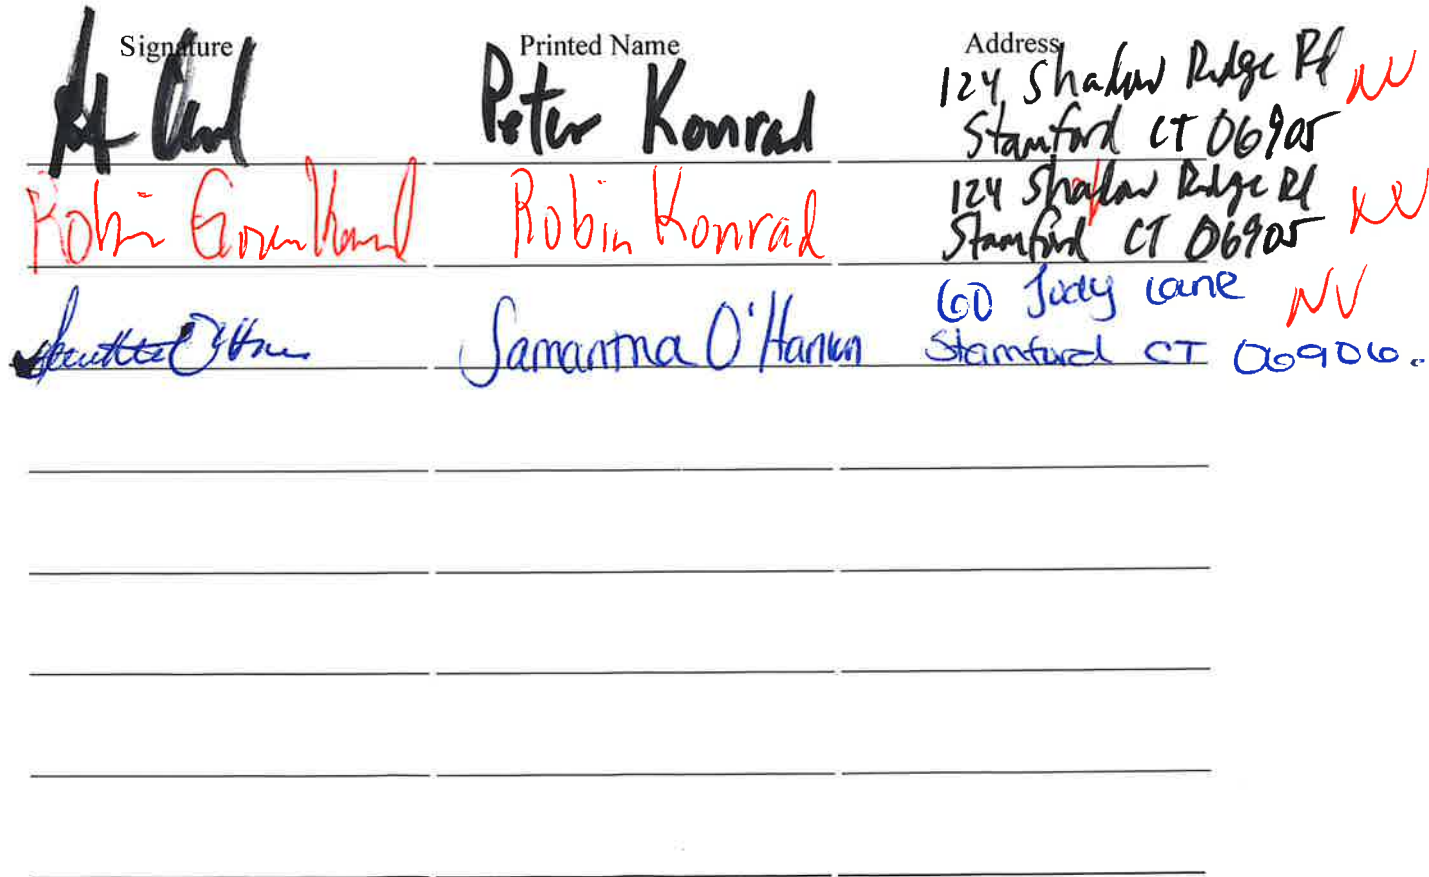 Signature Printed Name Address
Peter Konrad 124 Shadow Ridge Rd NV
Stamford CT 06905
Robin Konrad Robin Konrad 124 Shadow Ridge Rd
Stamford CT 06905
Samantha O'Hanlon 60 Judy Lane NV
Stamford CT 06906.